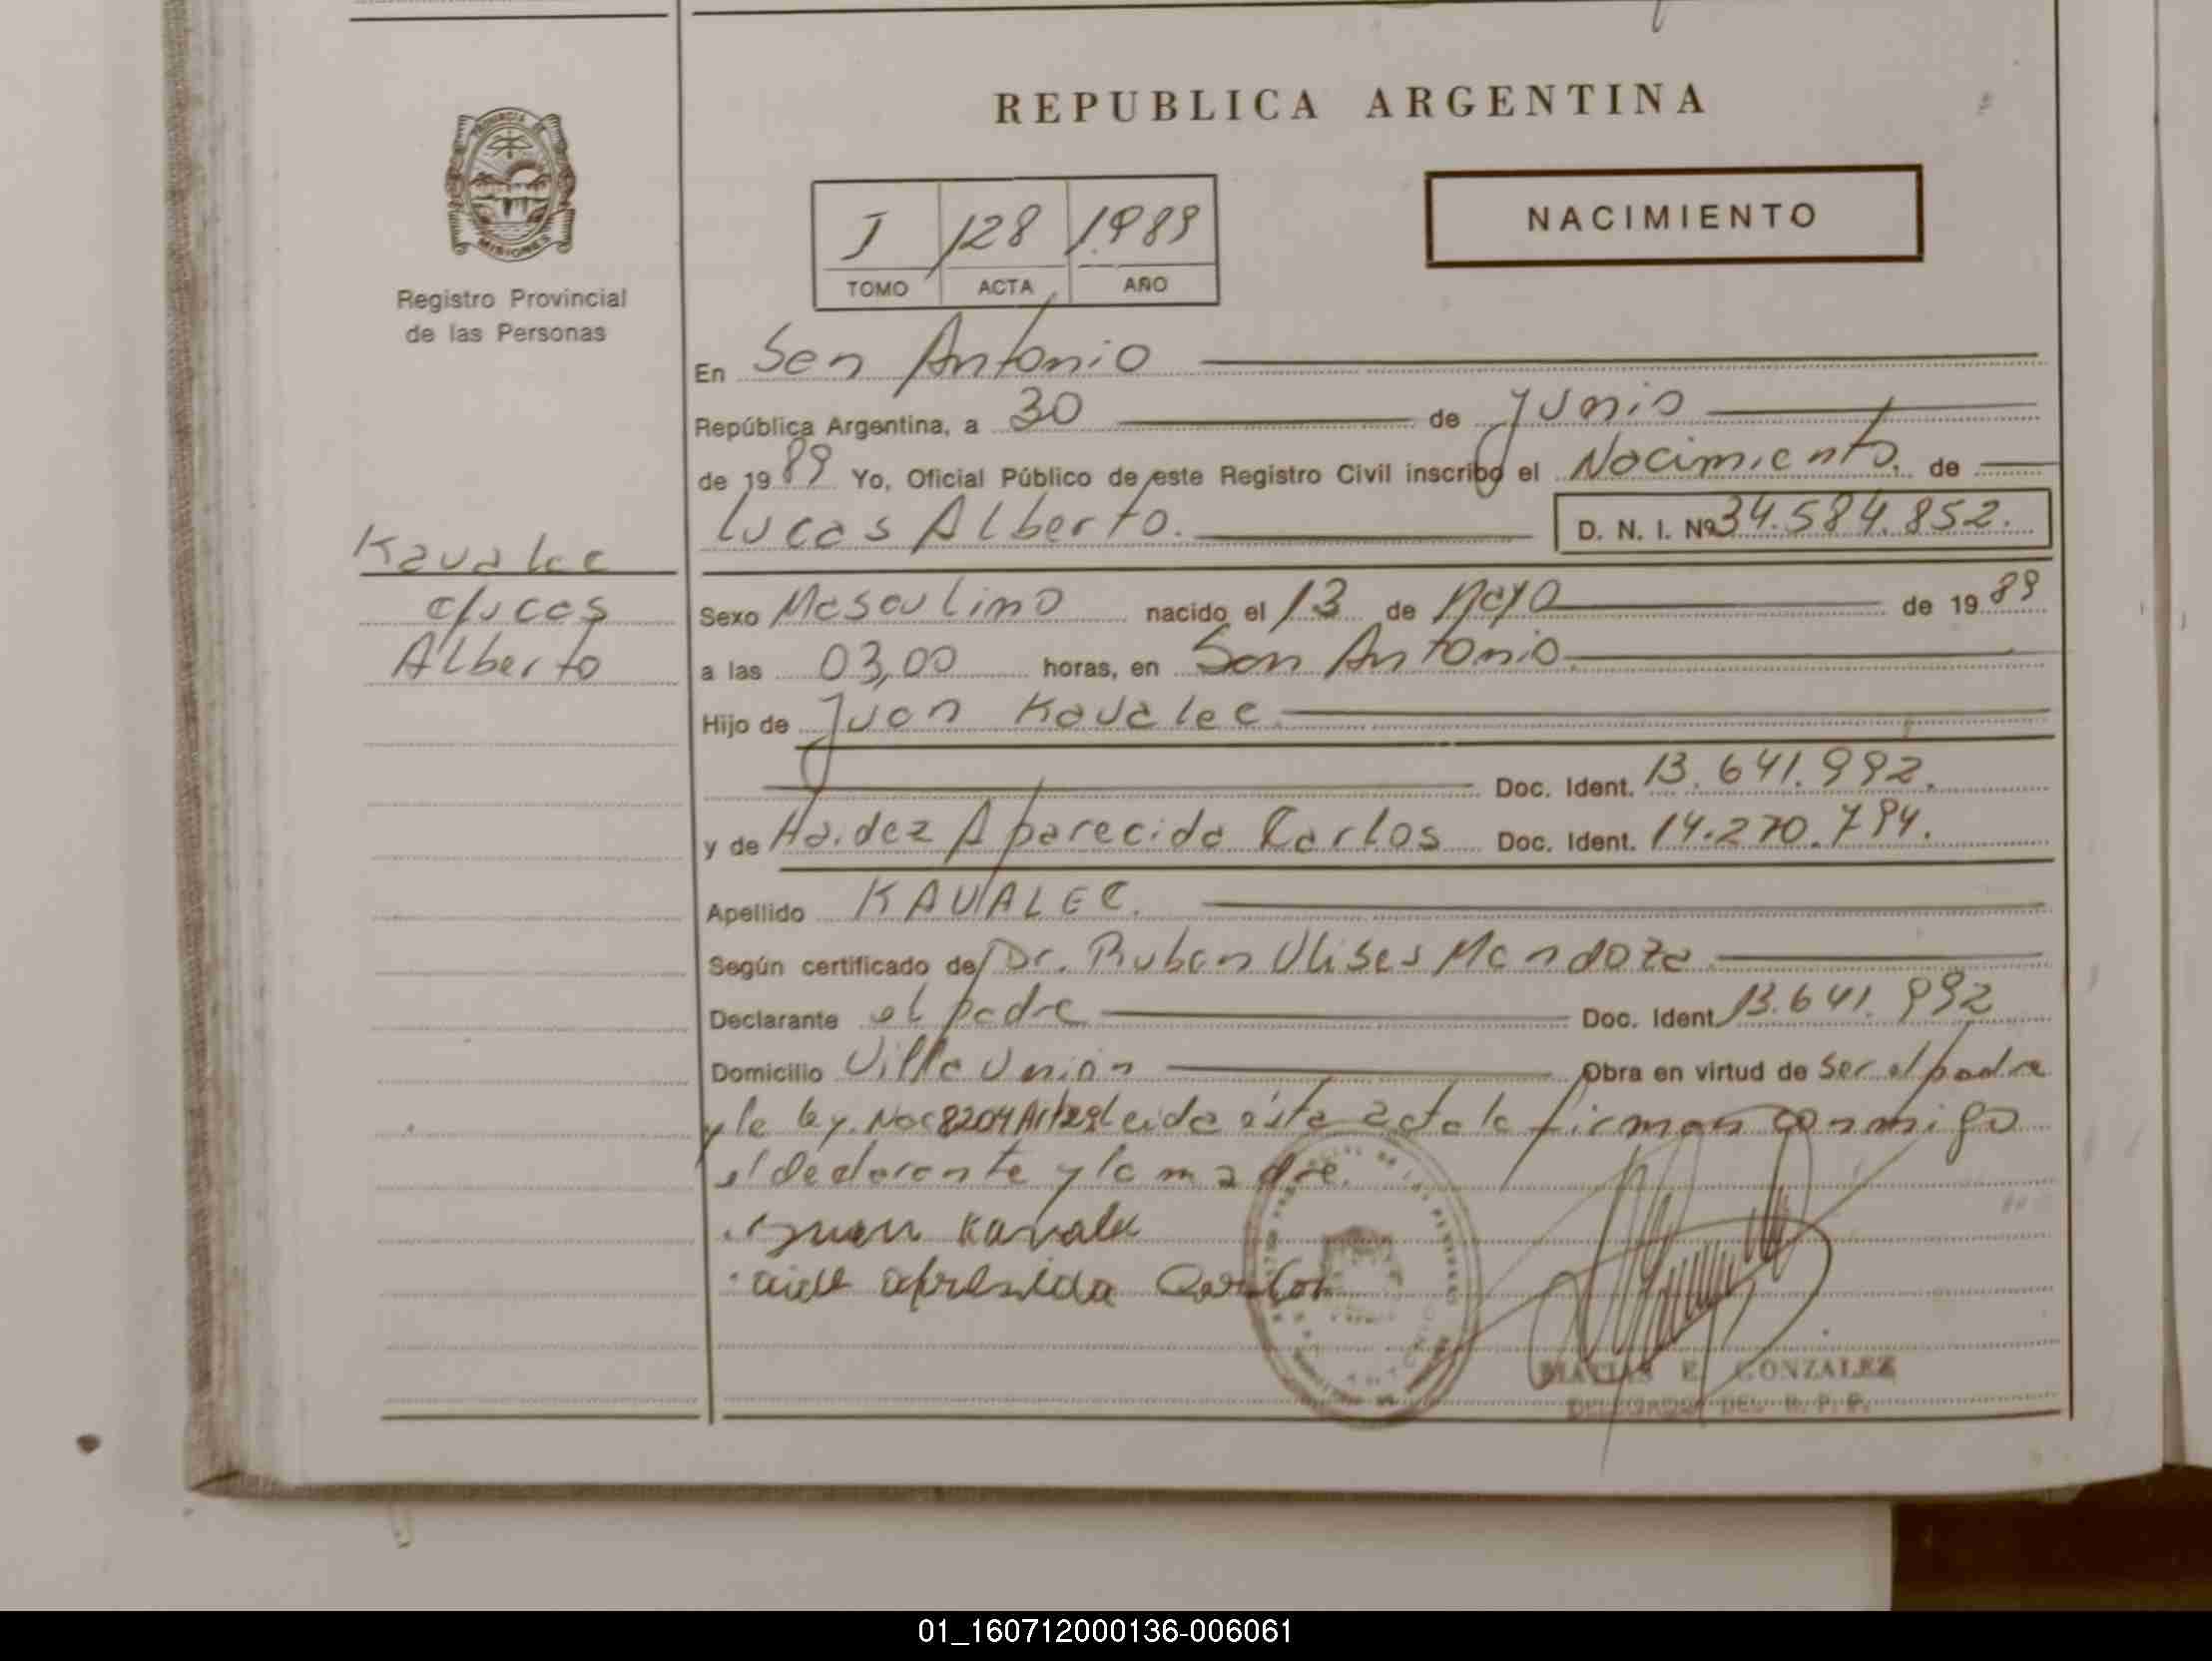 REPUBLICA ARGENTINA
PROVINCIA DE
MISIONES
Registro Provincial
de las Personas
I 128 1989
TOMO ACTA AÑO
NACIMIENTO
En San Antonio
República Argentina, a 30 de Junio
de 1989 Yo, Oficial Público de este Registro Civil inscribo el Nacimiento de
Lucas Alberto. D. N. I. Nº 34.584.852.
Kavalec
Lucas
Alberto
Sexo Masculino nacido el 13 de Mayo de 1989
a las 03,00 horas, en San Antonio
Hijo de Juan Kavalec
Doc. Ident. 13.641.992.
y de Haidez Aparecida Carlos Doc. Ident. 14.270.794.
Apellido KAVALEC.
Según certificado de Dr. Ruben Ulises Mendoza
Declarante el padre Doc. Ident 13.641.992
Domicilio Villa Unión Obra en virtud de ser el padre
y la ley. Leida ésta acta la firman conmigo
el declarante y la madre.
Juan Kavalec
Carlos
MATIAS E. GONZALEZ
DELEGADO DEL R. P. P.
01_160712000136-006061